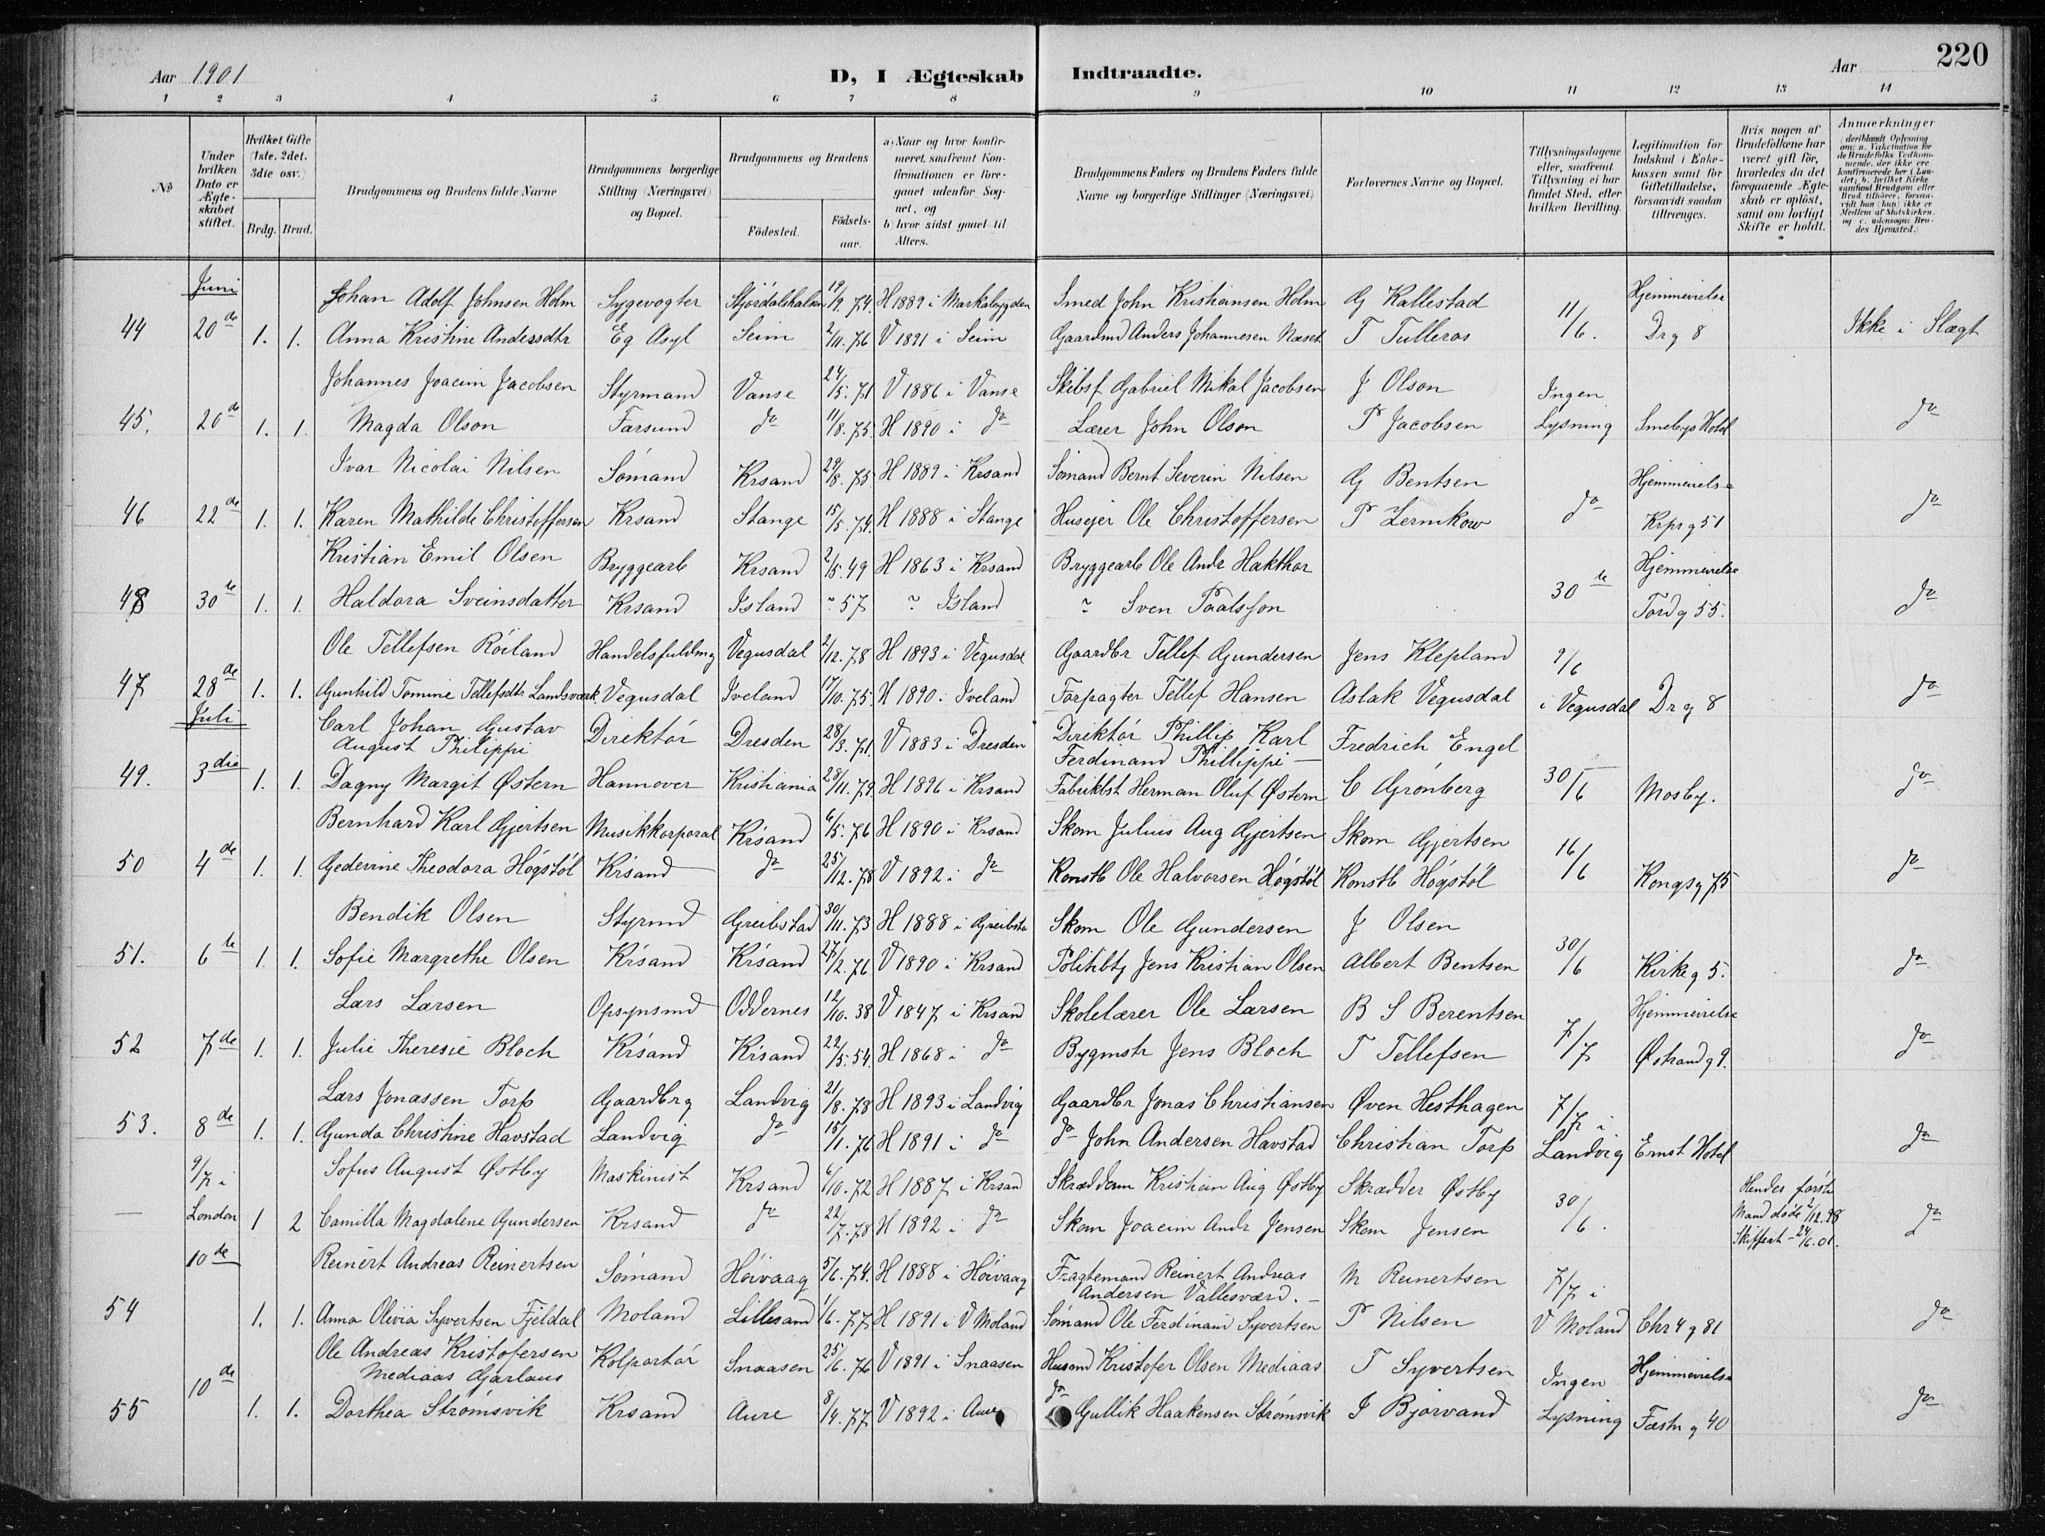 Aar 1901
D, I Ægteskab
Indtraadte.
Aar
220
1 2 3 4 5 6 7 8 9 10 11 12 13 14
No
Under hvilken Dato er Ægteskabet stiftet.
Hvilket Gifte (1ste, 2det, 3die osv.)
Brdg. Brud.
Brudgommens og Brudens fulde Navne
Brudgommens borgerlige Stilling (Næringsvei) og Bopæl.
Brudgommens og Brudens
Fødested. Fødselsaar.
a) Naar og hvor konfirmeret, saafremt Konfirmationen er foregaaet udenfor Sognet, og
b) hvor sidst gaaet til Alters.
Brudgommens Faders og Brudens Faders fulde Navne og borgerlige Stillinger (Næringsvei)
Forlovernes Navne og Bopæl.
Tillysningsdagene eller, saafremt Tillysning ei har fundet Sted, efter hvilken Bevilling.
Legitimation for Indskud i Enkekassen samt for Giftetilladelse, forsaavidt saadan tiltrænges.
Hvis nogen af Brudefolkene har været gift før, hvorledes da det foregaaende Ægteskab er opløst, samt om lovligt Skifte er holdt.
Anmærkninger
(deriblandt Oplysning om: a. Vakcination for de Brudefolks Vedkommende, der ikke ere konfirmerede her i Landet; b. hvilket Kirkesamfund Brudgom eller Brud tilhører, forsaavidt han (hun) ikke er Medlem af Statskirken, og c. udensogns Brudes Hjemsted.)
Juni
Johan Adolf Johnsen Holm Sygevogter Stjördalshalsen 19/9.74. H 1889 i Markabygden Smed John Kristiansen Holm G Kallestad 11/6. Hjemmeirelse
44 20de 1. 1. Anna Kristine Andersdtr Eg Asyl Seim 2/11.76 V 1891 i Seim Gaardmd Anders Johannesen Næset T Tulleros Drg 8 Ikke i Slægt
Johannes Joacim Jacobsen Styrmand Vanse 24/5.71 V 1886 i Vanse Skibsf Gabriel Mikal Jacobsen J Olson Ingen
45. 20de 1. 1. Magda Olson Farsund do 11/8.75. H 1890 i do Lærer John Olson P Jacobsen Lysning Smebys Hotel do
Ivar Nicolai Nilsen Sømand Krsand 29/8.75 H 1889 i Krsand Sømand Bernt Severin Nilsen G Bentsen Hjemmeirelse
46 22de 1. 1. Karen Mathilde Christoffersen Krsand Stange 15/5.74. H 1888 i Stange Husejer Ole Christoffersen P Lernkow do Krprg 51 do
Kristian Emil Olsen Bryggearb Krsand 2/5.49 H 1863 i Krsand Bryggearb Ole Andr Hakthor Hjemmeirelse
48 30te 1. 1. Haldora Sveinsdatter Krsand Island ~ 57 ~ Island ~ Sven Paalsson 30te Tordg 55. do
Ole Tellefsen Röiland Handelsfuldmg Vegusdal 2/12.78 H 1893 i Vegusdal Gaardbr Tellef Gundersen Jens Klepland 9/6
47 28de 1. 1. Gunhild Tomine Tellefsdtr Landsværk. Vegusdal Iveland 17/10.75. H 1890 i Iveland Forpagter Tellef Hansen Aslak Vegusdal i Vegusdal Drg 8 do
Juli
Carl Johan Gustav August Philippi Direktør Dresden 28/3.71. V 1883 i Dresden Direktør Phillip Karl Ferdinand Phillippi – Fredrich Engel
49. 3die 1. 1. Dagny Margit Østern Hannover Kristiania 28/11.79. H 1896 i Krsand Fabrikbst Herman Oluf Østern C Grønberg 30/6 Mosby. do
Bernhard Karl Gjertsen Musikkorporal Krsand 6/5.76 H 1890 i Krsand Skom Julius Aug Gjertsen Skom Gjertsen 16/6
50 4de 1. 1. Gedevine Theodora Høgstøl Krsand do 25/12.78 V 1892 i do Konstb Ole Halvorsen Høgstøl Konstb Høgstøl Kongsg 75 do
Bendik Olsen Styrmd Greibstad 30/11.73 H 1888 i Greibsta Skom Ole Gundersen J Olsen
51. 6te 1. 1. Sofie Margrethe Olsen Krsand Krsand 27/2.76 V 1890 i Krsand Politibtj Jens Kristian Olsen Albert Bentsen 30/6 Kirkeg 5. do
Lars Larsen Opsynsmd Oddernes 12/10.38 V 1847 i Krsand Skolelærer Ole Larsen B S Berentsen Hjemmeirelse
52 7de 1. 1. Julie Theresie Bloch Krsand Krsand 22/5.54. H 1868 i do Bygmstr Jens Bloch T Tellefsen 7/7 Østrandg 9. do
Lars Jonassen Torp Gaardbrg Landvig 21/8.78 H 1893 i Landvig Gaardbr Jonas Christiansen Øven Hesthagen 7/7 i
53. 8de 1. 1. Gunda Christine Havstad Landvig do 15/1.76 H 1891 i do do John Andersen Havstad Christian Torp Landvig Ernst Hotel do
9/7 i Sofus August Østby Maskinist Krsand 6/10.72 H 1887 i Krsand Skræddem Kristian Aug Østby Skrædder Østby 30/6. Hendes første
— London 1 2 Camilla Magdalene Gundersen Krsand do 22/7.78 H 1892 i do Skom Joacim Andr Jensen Skom Jensen Mand døde /12.98 Skifteat – 24/6.01. do
10de Reinert Andreas Reinertsen Sømand Høivaag 5/6.74. H 1888 i Høivaag Fragtemand Reinert Andreas Andersen Vallesværd. – M Reinertsen 7/7 i
54 1. 1. Anna Olivia Syvertsen Fjeldal Moland Lillesand 1/6.77 H 1891 i V Moland Sømand Ole Ferdinand Syvertsen P Nilsen V Moland Chr4g 81 do
Ole Andreas Kristofersen Mediaas Gjarlaus Kolportør Snaasen 25/6.76 V 1891 i Snaasen Husmd Kristofer Olsen Mediaas T Syvertsen Ingen Hjemmeirelse
55 10de 1. 1. Dorthea Strømsvik Krsand Aure 8/4.77 V 1892 i Aure do Gullik Haakensen Strømsvik J Bjorvand Lysning Fæstn g 40 do